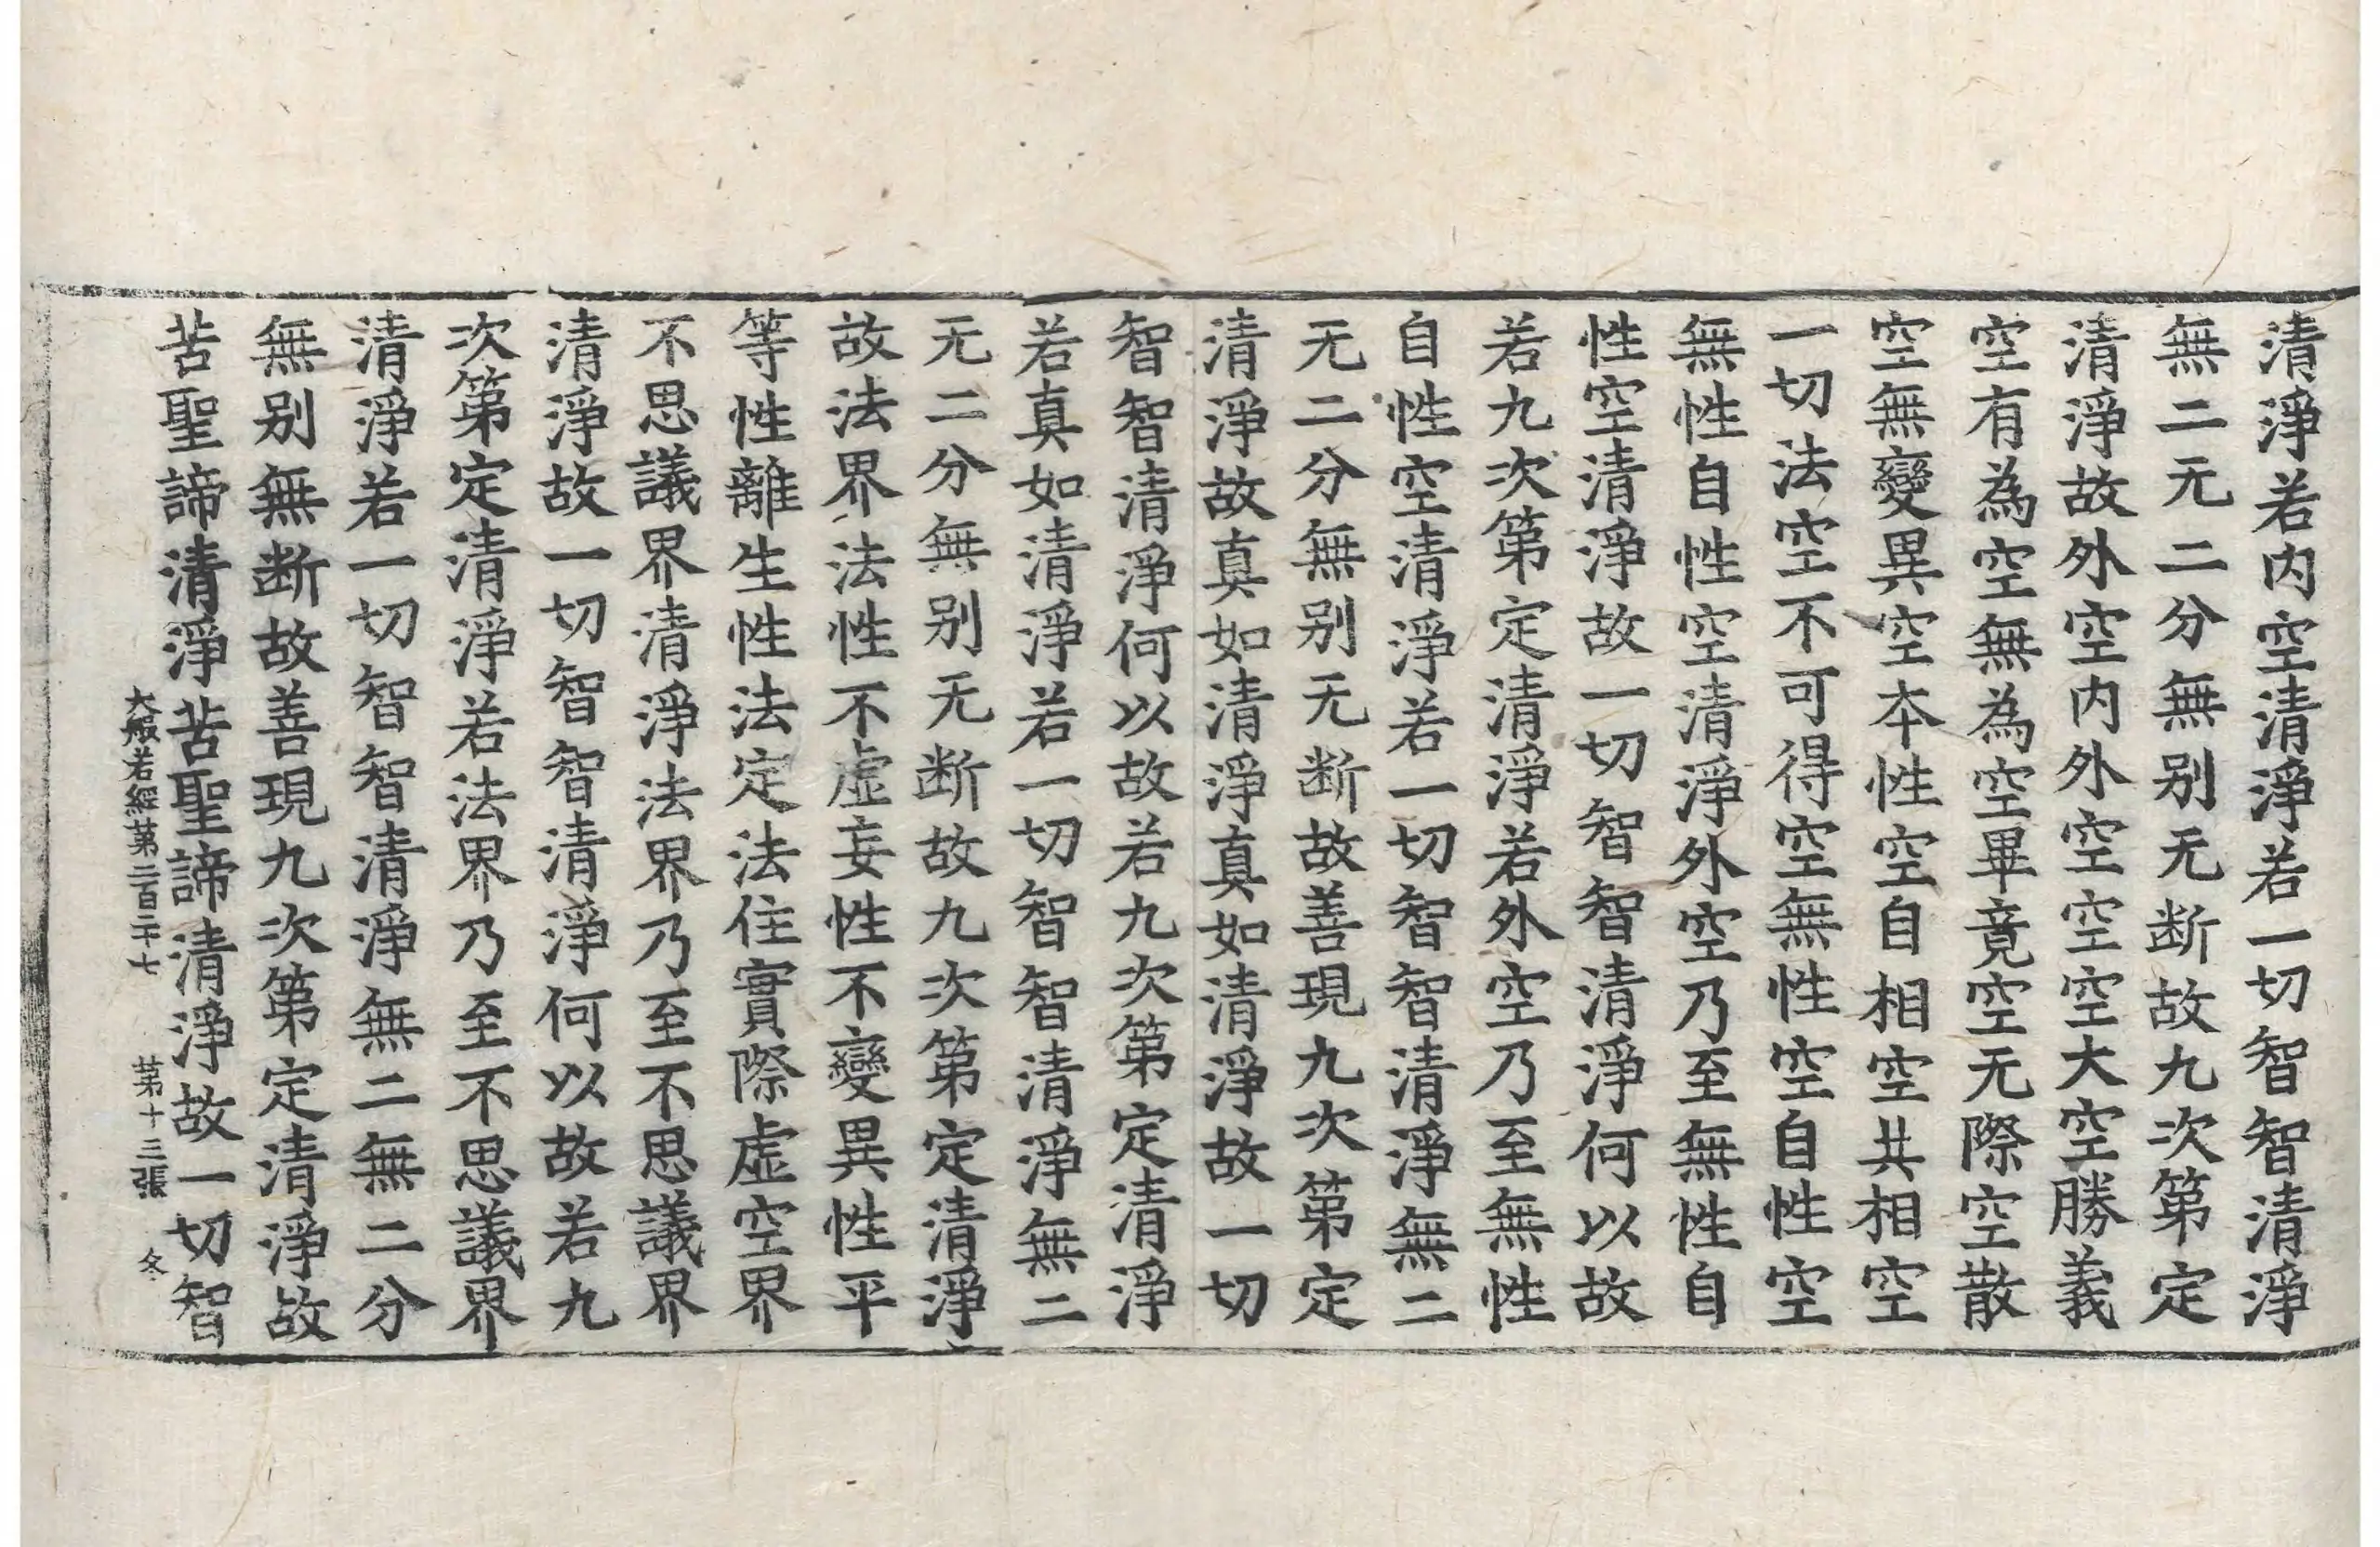 清淨若內空清淨若一切智智清淨
無二无二分無别无断故九次第定
清淨故外空內外空空空大空勝義
空有為空無為空畢竟空无際空散
空無變異空本性空自相空共相空
一切法空不可得空無性空自性空
無性自性空清淨外空乃至無性自
性空清淨故一切智智清淨何以故
若九次第定清淨若外空乃至無性
自性空清淨若一切智智清淨無二
无二分無别无断故善現九次第定
清淨故真如清淨真如清淨故一切
智智清淨何以故若九次第定清淨
若真如清淨若一切智智清淨無二
无二分無别无断故九次第定清淨
故法界法性不虛妄性不變異性平
等性離生性法定法住實際虛空界
不思議界清淨法界乃至不思議界
清淨故一切智智清淨何以故若九
次第定清淨若法界乃至不思議界
清淨若一切智智清淨無二無二分
無别無断故善現九次第定清淨故
苦聖諦清淨苦聖諦清淨故一切智
大般若經第二百二十七　第十三張　冬